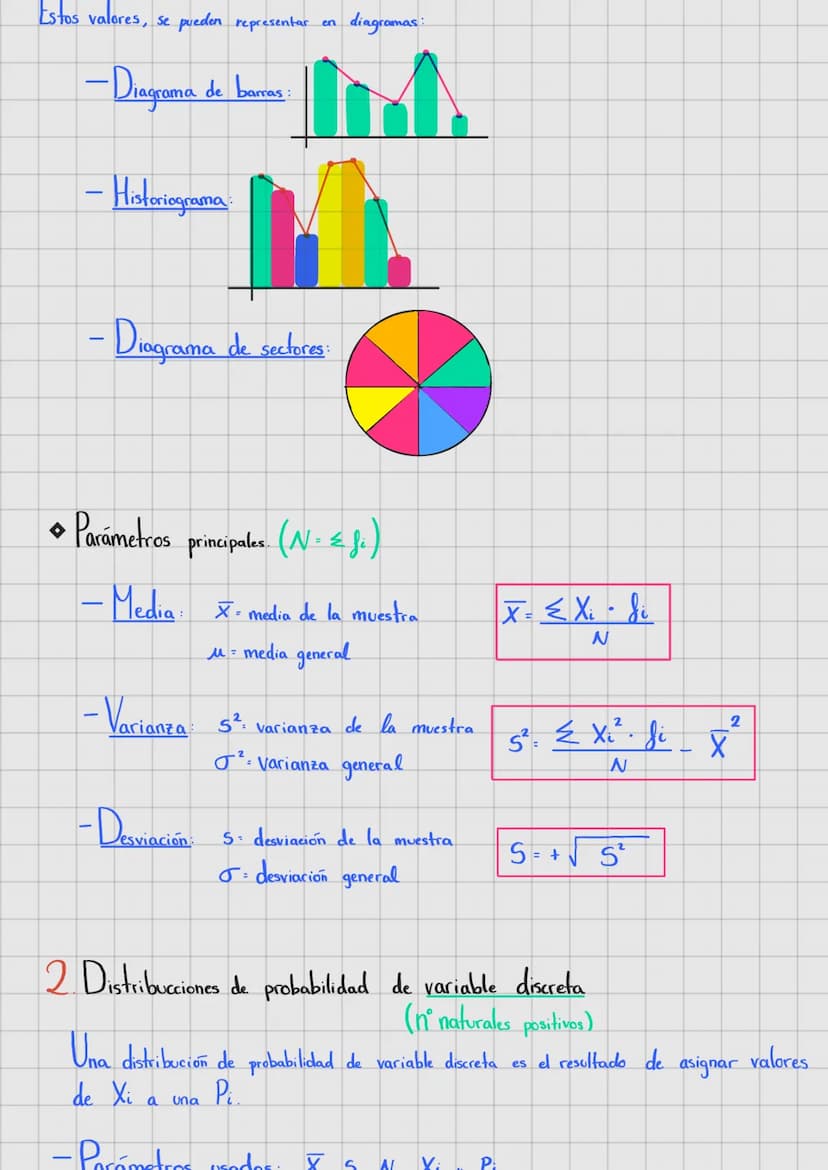 Estos valores, se pueden representar en diagramas:
- Diagrama de barras:
- Historiograma:
- Diagrama de sectores:
Parámetros principales. (N = Σ fi)
- Media: x̅ = media de la muestra
μ = media general
x̅ = Σ Xi · fi / N
- Varianza: S²: varianza de la muestra
σ²: varianza general
S² = Σ Xi² · fi / N - x̅²
- Desviación: S = desviación de la muestra
σ = desviación general
S = + √S²
2. Distribucciones de probabilidad de variable discreta
(nº naturales positivos)
Una distribución de probabilidad de variable discreta es el resultado de asignar valores
de Xi a una Pi.
- Parámetros usados: x̅, S, N, Xi y Pi